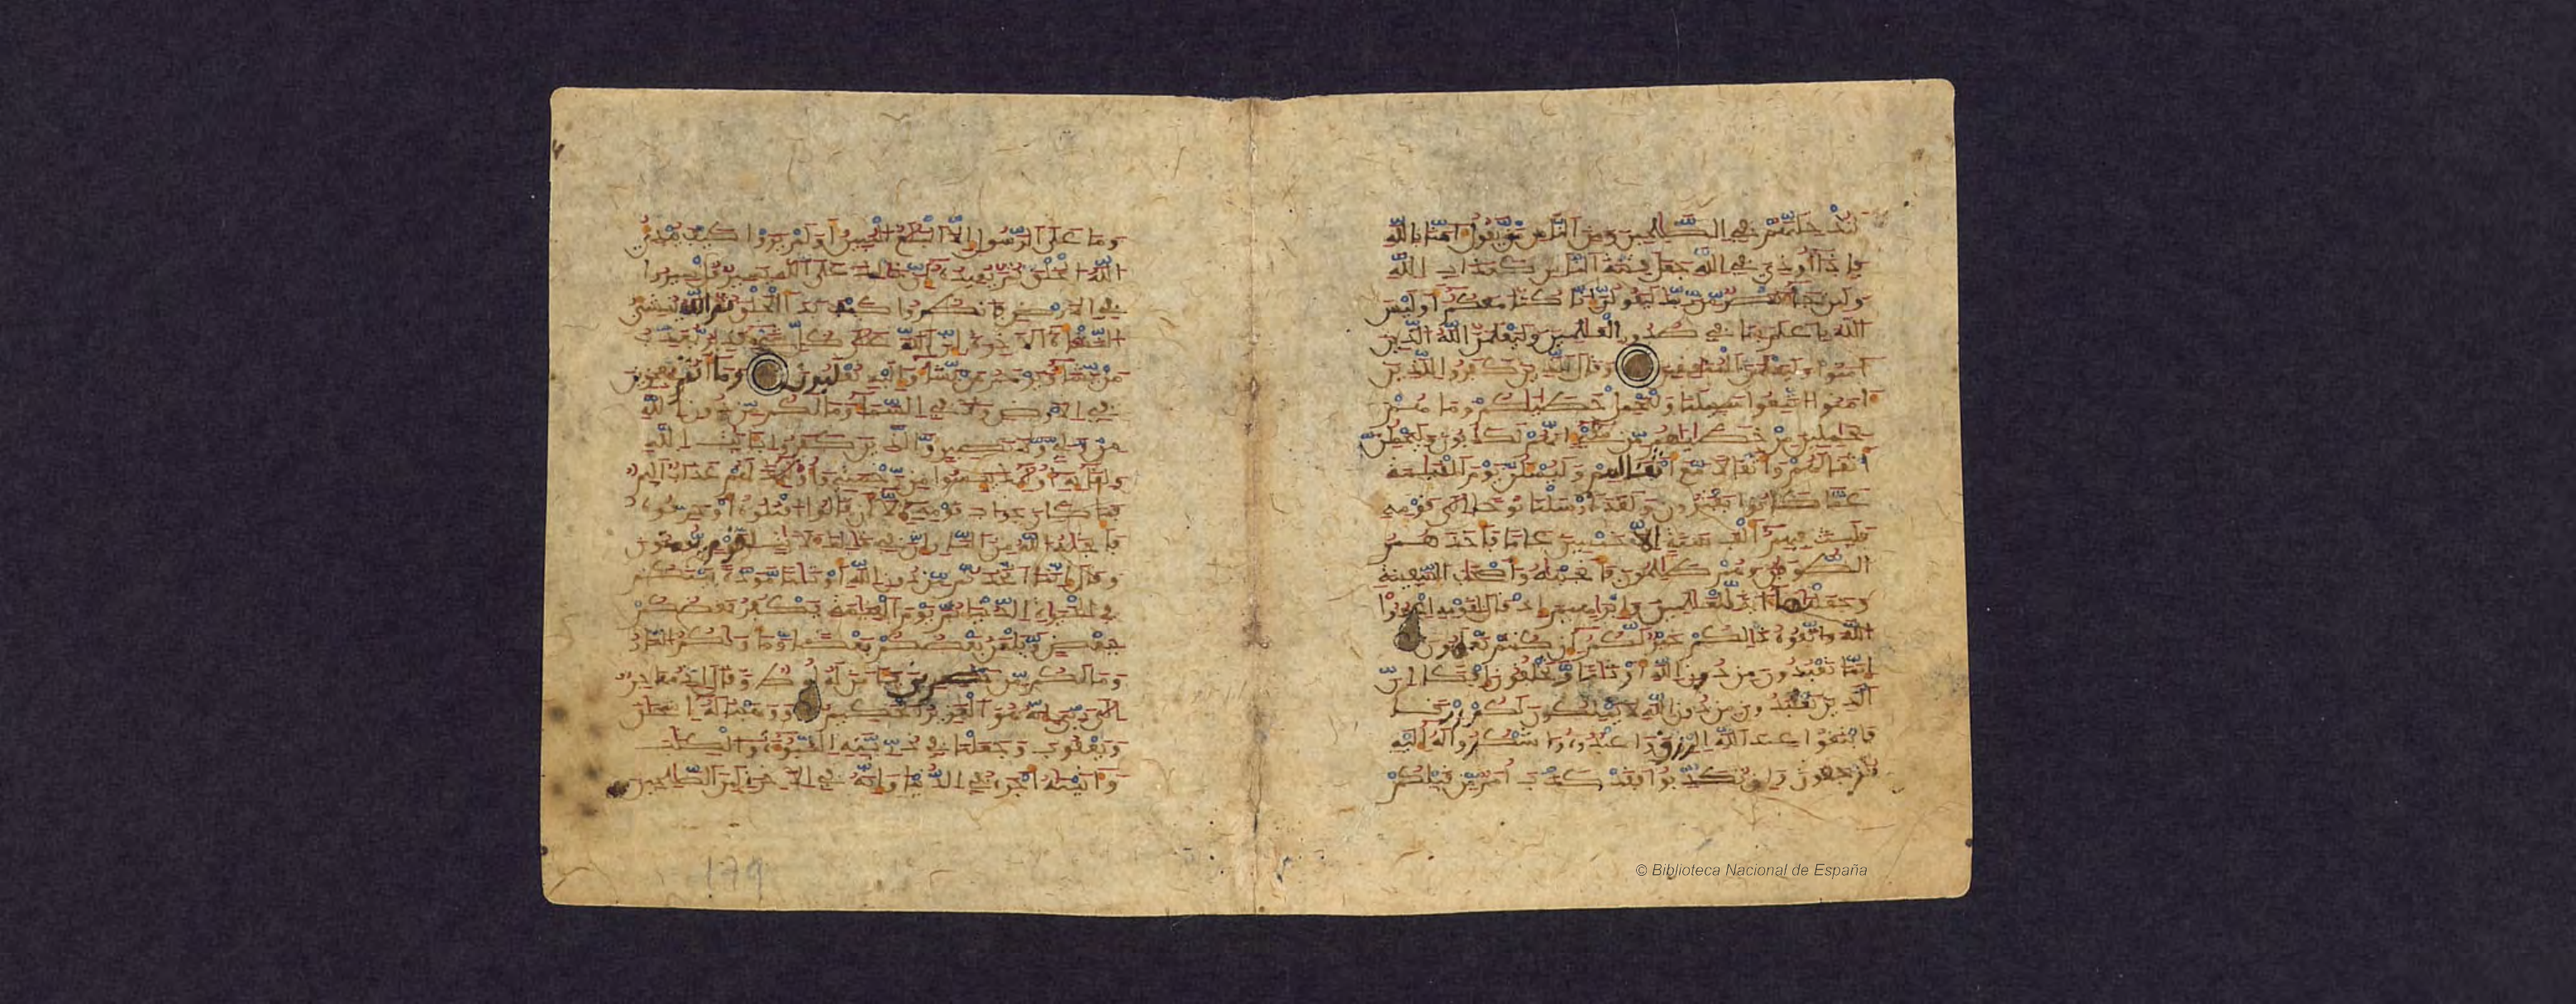 لندخلنهم في الصلحين ومن الناس من يقول امنا بالله
فإذا أوذي في الله جعل فتنة الناس كعذاب الله
ولين جا نصر من ربك ليقولن انا كنا معكم أوليس
الله بأعلم بما في صدور العلمين وليعلمن الله الذين
امنوا وليعلمن المنفقين وقال الذين كفروا للذين
امنوا اتبعوا سبيلنا ولنحمل خطيكم وما هم
بحاملين من خطاياهم من شيء انهم لكاذبون وليحملن
أثقالهم وأثقالا مع أثقالهم وليسئلن يوم القيامة
عما كانوا يفترون ولقد أرسلنا نوحا الى قومه
فلبث فيهم ألف سنة إلا خمسين عاما فأخذهم
الطوفان وهم ظالمون فأنجينه وأصحاب السفينة
وجعلناها اية للعالمين وإبراهيم إذ قال لقومه اعبدوا
الله واتقوه ذالكم خير لكم إن كنتم تعلمون
إنما تعبدون من دون الله أوثانا وتخلقون إفكا إن
الذين تعبدون من دون الله لا يملكون لكم رزقا
فابتغوا عند الله الرزق واعبدوه واشكروا له إليه
ترجعون وإن تكذبوا فقد كذب أمم من قبلكم
وما على الرسول إلا البلغ المبين أولم يروا كيف يبدئ
الله الخلق ثم يعيده إن ذلك على الله يسير قل سيروا
في الارض فانظروا كيف بدأ الخلق ثم الله ينشئ
النشأة الاخرة إن الله على كل شيء قدير يعذب
من يشا ويرحم من يشا وإليه تقلبون وما أنتم بمعجزين
في الارض ولا في السما وما لكم من دون الله
من ولي ولا نصير والذين كفروا بايت الله
ولقايه أوليك ييسوا من رحمتي وأوليك لهم عذاب اليم
فما كان جواب قومه إلا أن قالوا اقتلوه أو حرقوه
فأنجيه الله من النار إن في ذلك لايت لقوم يومنون
وقال إنما اتخذتم من دون الله أوثانا مودة بينكم
في الحيواة الدنيا ثم يوم القيامة يكفر بعضكم
ببعض ويلعن بعضكم بعضا وماويكم النار
وما لكم من نصرين فامن له لوط وقال إني مهاجر
إلى ربي إنه هو العزيز الحكيم ووهبنا له إسحق
ويعقوب وجعلنا في ذريته النبوة والكتاب
واتينه أجره في الدنيا وإنه في الاخرة لمن الصلحين
179
© Biblioteca Nacional de España